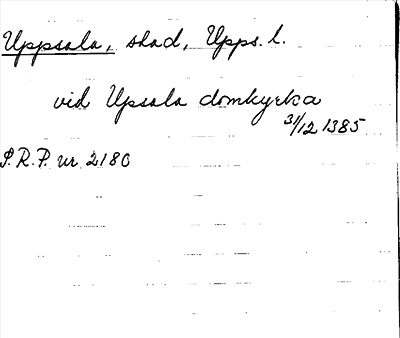 Uppsala, stad, Upps. l.
vid Upsala domkyrka
31/12 1385
S.R.P. nr 2180